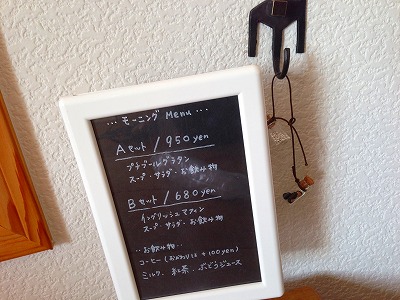 … モーニング Menu …
Aセット / 950yen
プチブールグラタン
スープ・サラダ・お飲み物
Bセット / 680yen
イングリッシュマフィン
スープ・サラダ・お飲み物
‥お飲み物‥
コーヒー (おかわりは +100yen)
ミルク、紅茶、ぶどうジュース